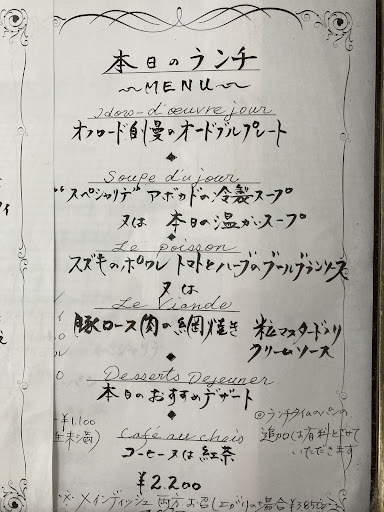 本日のランチ
～MENU～
Hors-d'œuvre jour
オフロード自慢のオードブルプレート
Soupe du jour
"スペシャリテ" アボカドの冷製スープ
又は 本日の温かいスープ
Le poisson
スズキのポワレ トマトとハーブのブールブランソース
又は
Le Viande
豚ロース肉の網焼き 粒マスタード入り
クリームソース
Desserts Dejeuner
本日のおすすめデザート
¥1.100
◎ランチタイムのパンの
追加は有料とさせて
いただきます
Café au choix
コーヒー又は紅茶
¥2.200
※メインディッシュ両方お召し上がりの場合¥3850